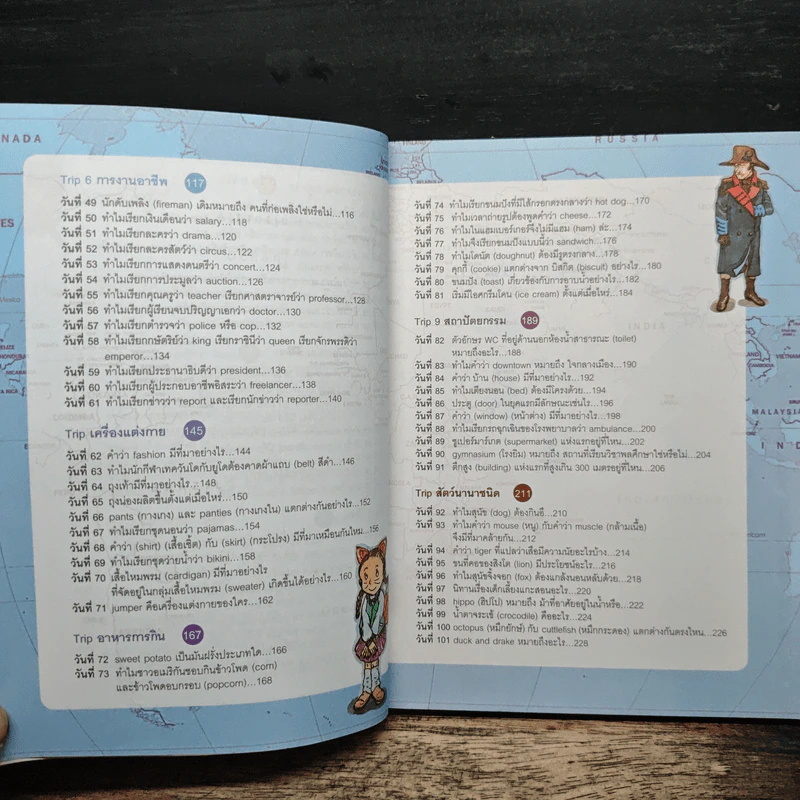 NADA
Trip 6 การงานอาชีพ 117
วันที่ 49 นักดับเพลิง (fireman) เดิมหมายถึง คนที่ก่อเพลิงใช่หรือไม่...116
วันที่ 50 ทำไมเรียกเงินเดือนว่า salary...118
วันที่ 51 ทำไมเรียกละครว่า drama...120
วันที่ 52 ทำไมเรียกละครสัตว์ว่า circus...122
วันที่ 53 ทำไมเรียกการแสดงดนตรีว่า concert...124
วันที่ 54 ทำไมเรียกการประมูลว่า auction...126
วันที่ 55 ทำไมเรียกคุณครูว่า teacher เรียกศาสตราจารย์ว่า professor...128
วันที่ 56 ทำไมเรียกผู้เรียนจบปริญญาเอกว่า doctor...130
วันที่ 57 ทำไมเรียกตำรวจว่า police หรือ cop...132
วันที่ 58 ทำไมเรียกกษัตริย์ว่า king เรียกราชินีว่า queen เรียกจักรพรรดิว่า
emperor...134
วันที่ 59 ทำไมเรียกประธานาธิบดีว่า president...136
วันที่ 60 ทำไมเรียกผู้ประกอบอาชีพอิสระว่า freelancer...138
วันที่ 61 ทำไมเรียกข่าวว่า report และเรียกนักข่าวว่า reporter...140
Trip เครื่องแต่งกาย 145
วันที่ 62 คำว่า fashion มีที่มาอย่างไร...144
วันที่ 63 ทำไมนักกีฬาเทควันโดกับยูโดต้องคาดผ้าแถบ (belt) สีดำ...146
วันที่ 64 ถุงเท้ามีที่มาอย่างไร...148
วันที่ 65 ถุงน่องผลิตขึ้นตั้งแต่เมื่อไหร่...150
วันที่ 66 pants (กางเกง) และ panties (กางเกงใน) แตกต่างกันอย่างไร...152
วันที่ 67 ทำไมเรียกชุดนอนว่า pajamas...154
วันที่ 68 คำว่า (shirt) (เสื้อเชิ้ต) กับ (skirt) (กระโปรง) มีที่มาเหมือนกันไหม...156
วันที่ 69 ทำไมเรียกชุดว่ายน้ำว่า bikini...158
วันที่ 70 เสื้อไหมพรม (cardigan) มีที่มาอย่างไร
ที่จัดอยู่ในกลุ่มเสื้อไหมพรม (sweater) เกิดขึ้นได้อย่างไร...160
วันที่ 71 jumper คือเครื่องแต่งกายของใคร...162
Trip อาหารการกิน 167
วันที่ 72 sweet potato เป็นมันฝรั่งประเภทใด...166
วันที่ 73 ทำไมชาวอเมริกันชอบกินข้าวโพด (corn)
และข้าวโพดอบกรอบ (popcorn)...168
RUSSIA
วันที่ 74 ทำไมเรียกขนมปังที่มีไส้กรอกตรงกลางว่า hot dog...170
วันที่ 75 ทำไมเวลาถ่ายรูปต้องพูดคำว่า cheese...172
วันที่ 76 ทำไมในแฮมเบอร์เกอร์จึงไม่มีแฮม (ham) ล่ะ...174
วันที่ 77 ทำไมจึงเรียกขนมปังแบบนี้ว่า sandwich...176
วันที่ 78 ทำไมโดนัต (doughnut) ต้องมีรูตรงกลาง...178
วันที่ 79 คุกกี้ (cookie) แตกต่างจาก บิสกิต (biscuit) อย่างไร...180
วันที่ 80 ขนมปัง (toast) เกี่ยวข้องกับการอาบน้ำอย่างไร...182
วันที่ 81 เริ่มมีไอศกรีมโคน (ice cream) ตั้งแต่เมื่อไหร่...184
Trip 9 สถาปัตยกรรม 189
วันที่ 82 ตัวอักษร WC ที่อยู่ด้านนอกห้องน้ำสาธารณะ (toilet)
หมายถึงอะไร...188
วันที่ 83 ทำไมคำว่า downtown หมายถึง ใจกลางเมือง...190
วันที่ 84 คำว่า บ้าน (house) มีที่มาอย่างไร...192
วันที่ 85 ทำไมเตียงนอน (bed) ต้องมีโครงด้วย...194
วันที่ 86 ประตู (door) ในยุคแรกมีลักษณะเช่นไร...196
วันที่ 87 คำว่า (window) (หน้าต่าง) มีที่มาอย่างไร...198
วันที่ 88 ทำไมเรียกรถฉุกเฉินของโรงพยาบาลว่า ambulance...200
วันที่ 89 ซูเปอร์มาร์เกต (supermarket) แห่งแรกอยู่ที่ไหน...202
วันที่ 90 gymnasium (โรงยิม) หมายถึง สถานที่เรียนวิชาพลศึกษาใช่หรือไม่...204
วันที่ 91 ตึกสูง (building) แห่งแรกที่สูงเกิน 300 เมตรอยู่ที่ไหน...206
MALAYSIA
Trip สัตว์นานาชนิด 211
วันที่ 92 ทำไมสุนัข (dog) ต้องกินอึ...210
วันที่ 93 ทำไมคำว่า mouse (หนู) กับคำว่า muscle (กล้ามเนื้อ)
จึงมีที่มาคล้ายกัน...212
วันที่ 94 คำว่า tiger ที่แปลว่าเสือมีความนัยอะไรบ้าง...214
วันที่ 95 ขนที่คอของสิงโต (lion) มีประโยชน์อะไร...216
วันที่ 96 ทำไมสุนัขจิ้งจอก (fox) ต้องแกล้งนอนหลับด้วย...218
วันที่ 97 นิทานเรื่องเด็กเลี้ยงแกะสอนอะไร...220
วันที่ 98 hippo (ฮิปโป) หมายถึง ม้าที่อาศัยอยู่ในน้ำหรือ...222
วันที่ 99 น้ำตาจระเข้ (crocodile) คืออะไร...224
วันที่ 100 octopus (หมึกยักษ์) กับ cuttlefish (หมึกกระดอง) แตกต่างกันตรงไหน...226
วันที่ 101 duck and drake หมายถึงอะไร...228